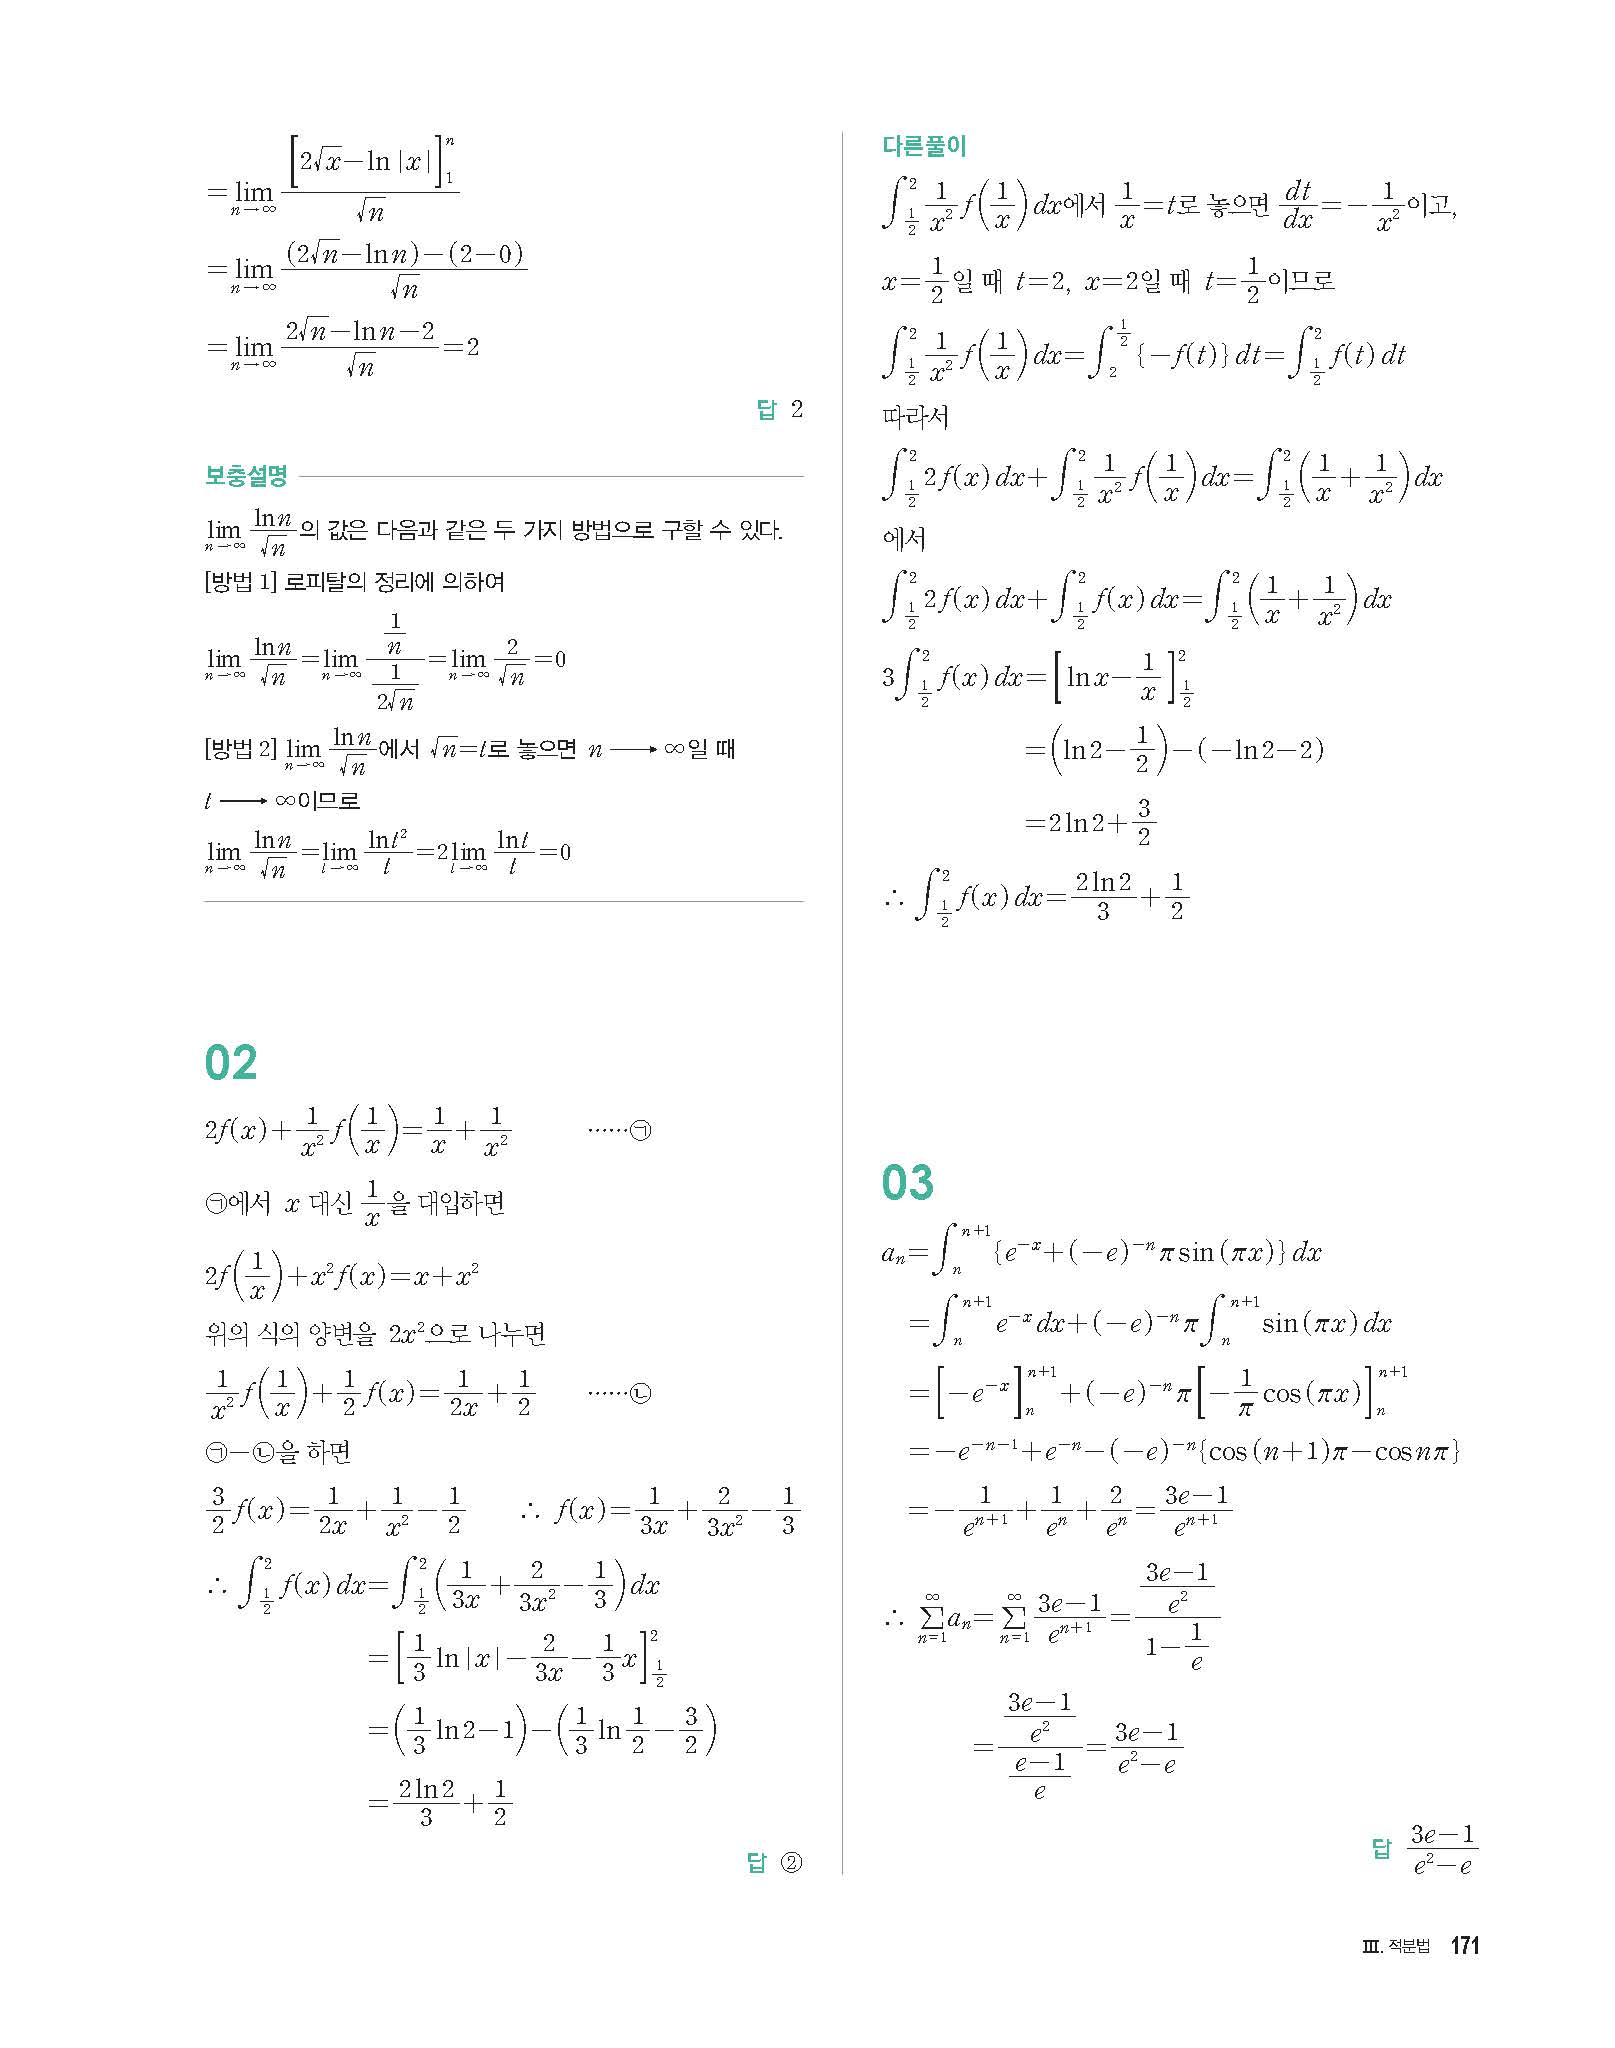 =lim_{n→∞} [2√x−ln|x|]_1^n / √n
=lim_{n→∞} {(2√n−ln n)−(2−0)} / √n
=lim_{n→∞} (2√n−ln n−2) / √n =2
답 2
보충설명
lim_{n→∞} (ln n / √n)의 값은 다음과 같은 두 가지 방법으로 구할 수 있다.
[방법 1] 로피탈의 정리에 의하여
lim_{n→∞} (ln n / √n) = lim_{n→∞} (1/n) / (1/(2√n)) = lim_{n→∞} 2/√n =0
[방법 2] lim_{n→∞} (ln n / √n)에서 √n=t로 놓으면 n ⟶ ∞일 때
t ⟶ ∞이므로
lim_{n→∞} (ln n / √n) = lim_{t→∞} (ln t² / t) = 2lim_{t→∞} (ln t / t) =0
02
2f(x)+(1/x²)f(1/x)=1/x+1/x² ……㉠
㉠에서 x 대신 1/x을 대입하면
2f(1/x)+x²f(x)=x+x²
위의 식의 양변을 2x²으로 나누면
(1/x²)f(1/x)+(1/2)f(x)=1/(2x)+1/2 ……㉡
㉠−㉡을 하면
(3/2)f(x)=1/(2x)+1/x²−1/2 ∴ f(x)=1/(3x)+2/(3x²)−1/3
∴ ∫_{1/2}^{2} f(x)dx=∫_{1/2}^{2} (1/(3x)+2/(3x²)−1/3)dx
=[(1/3)ln|x|−2/(3x)−(1/3)x]_{1/2}^{2}
=((1/3)ln2−1)−((1/3)ln(1/2)−3/2)
=(2ln2)/3+1/2
답 ②
다른풀이
∫_{1/2}^{2} (1/x²)f(1/x)dx에서 1/x=t로 놓으면 dt/dx=−1/x²이고,
x=1/2일 때 t=2, x=2일 때 t=1/2이므로
∫_{1/2}^{2} (1/x²)f(1/x)dx=∫_{2}^{1/2} {−f(t)}dt=∫_{1/2}^{2} f(t)dt
따라서
∫_{1/2}^{2} 2f(x)dx+∫_{1/2}^{2} (1/x²)f(1/x)dx=∫_{1/2}^{2} (1/x+1/x²)dx
에서
∫_{1/2}^{2} 2f(x)dx+∫_{1/2}^{2} f(x)dx=∫_{1/2}^{2} (1/x+1/x²)dx
3∫_{1/2}^{2} f(x)dx=[ln x−1/x]_{1/2}^{2}
=(ln2−1/2)−(−ln2−2)
=2ln2+3/2
∴ ∫_{1/2}^{2} f(x)dx=(2ln2)/3+1/2
03
a_n=∫_{n}^{n+1} {e^{−x}+(−e)^{−n}π sin(πx)}dx
=∫_{n}^{n+1} e^{−x}dx+(−e)^{−n}π∫_{n}^{n+1} sin(πx)dx
=[−e^{−x}]_{n}^{n+1}+(−e)^{−n}π[−(1/π)cos(πx)]_{n}^{n+1}
=−e^{−n−1}+e^{−n}−(−e)^{−n}{cos(n+1)π−cos nπ}
=−1/e^{n+1}+1/e^n+2/e^n=(3e−1)/e^{n+1}
∴ ∑_{n=1}^{∞} a_n=∑_{n=1}^{∞} (3e−1)/e^{n+1}=((3e−1)/e²)/(1−1/e)
=((3e−1)/e²)/((e−1)/e)=(3e−1)/(e²−e)
답 (3e−1)/(e²−e)
Ⅲ. 적분법 171